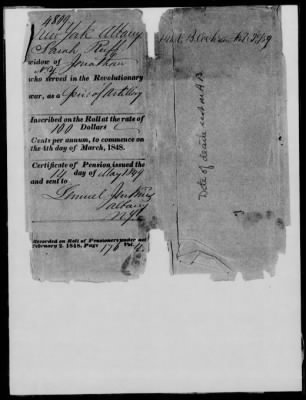 4809
New York Albany
Sarah Ruff
widow of Jonathan
N.Y.
who served in the Revolutionary
war, as a of Artillery
Inscribed on the Roll at the rate of
100 Dollars
Cents per annum, to commence on
the 4th day of March, 1848.
Certificate of Pension issued the
14 day of May 1849
and sent to
Lemuel Jenkins
Albany
N.Y.
Recorded on Roll of Pensioners under act
February 2, 1848, Page 176 Vol.
Date of death